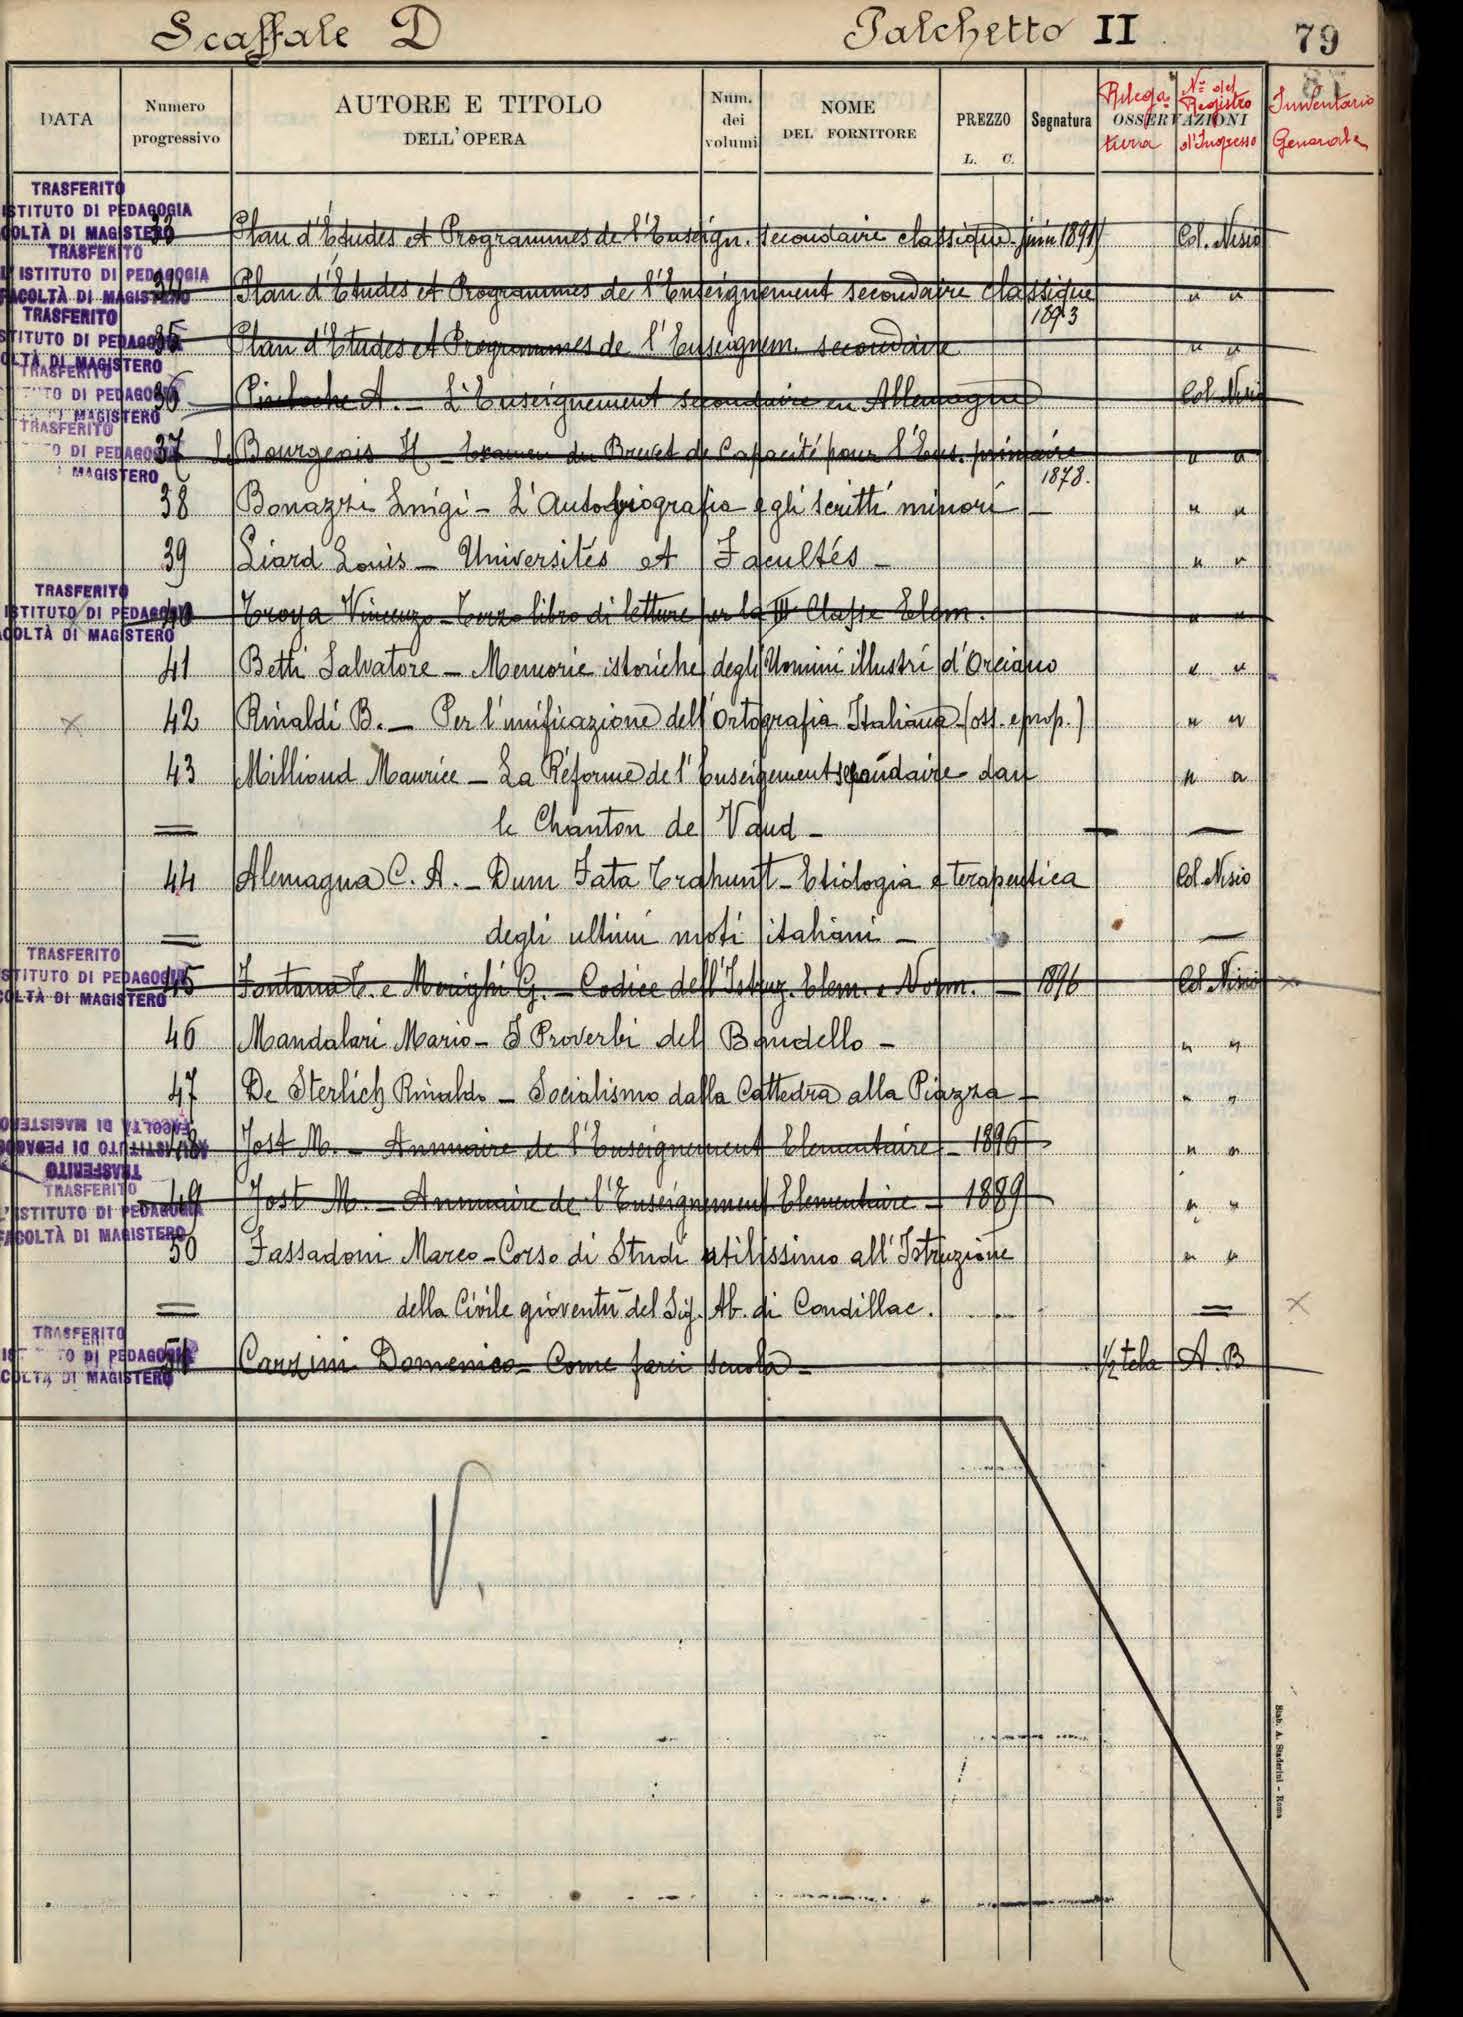 Scaffale D Palchetto II 79
DATA Numero progressivo AUTORE E TITOLO DELL'OPERA Num. dei volumi NOME DEL FORNITORE PREZZO L. C. Segnatura OSSERVAZIONI
Rilegatura Nº del Registro d'Ingresso Inventario Generale
TRASFERITO
ISTITUTO DI PEDAGOGIA
COLTÀ DI MAGISTERO
33 Plan d'Études et Programmes de l'Enseign. secondaire classique juin 1891 Col. Nisio
TRASFERITO
L'ISTITUTO DI PEDAGOGIA
FACOLTÀ DI MAGISTERO
34 Plan d'Études et Programmes de l'Enseignement secondaire classique " "
1893
TRASFERITO
STITUTO DI PEDAGOGIA
OLTÀ DI MAGISTERO
35 Plan d'Etudes et Programmes de l'Enseignem. secondaire " "
TRASFERITO
TO DI PEDAGOGIA
MAGISTERO
36 Pinloche A. – L'Enseignement secondaire en Allemagne Col. Nisio
TRASFERITO
O DI PEDAGOGIA
MAGISTERO
37 Le Bourgeois H – Examen du Brevet de Capacité pour l'Ens. primaire " "
1878.
38 Bonazzi Luigi – L'Autobiografia e gli scritti minori – " "
39 Liard Louis – Universités et Facultés – " "
TRASFERITO
ISTITUTO DI PEDAGOGIA
COLTÀ DI MAGISTERO
40 Troya Vincenzo – Terzo libro di letture per la III Classe Elem. " "
41 Betti Salvatore – Memorie istoriche degli Uomini illustri d'Orciano " "
x 42 Rinaldi B. – Per l'unificazione dell'Ortografia Italiana – (oss. e prop.) " "
43 Millioud Maurice – La Réforme de l'Enseigement secondaire dan " "
= le Chanton de Vaud – — —
44 Alemagna C. A. – Dum Fata Trahunt – Etiologia e terapeutica Col. Nisio
= degli ultimi moti italiani – —
TRASFERITO
STITUTO DI PEDAGOGIA
COLTÀ DI MAGISTERO
45 Fontana E. e Menghi G. – Codice dell'Istruz. Elem. e Norm. – 1896 Col. Nisio x
46 Mandalari Mario – I Proverbi del Bandello – " "
47 De Sterlich Rinaldo – Socialismo dalla Cattedra alla Piazza – " "
FACOLTÀ DI MAGISTERO
ALL'ISTITUTO DI PEDAGOGIA
TRASFERITO
48 Jost M. – Annuaire de l'Enseignement Elementaire – 1896 " "
TRASFERITO
L'ISTITUTO DI PEDAGOGIA
FACOLTÀ DI MAGISTERO
49 Jost M. – Annuaire de l'Enseignement Elementaire – 1889 " "
50 Fassadoni Marco – Corso di Studi utilissimo all'Istruzione " "
= della Civile gioventù del Sig. Ab. di Condillac. = x
TRASFERITO
TO DI PEDAGOGIA
COLTÀ DI MAGISTERO
51 Canzini Domenico – Come farei scuola – ½ tela A. B
V.
Stab. A. Staderini - Roma